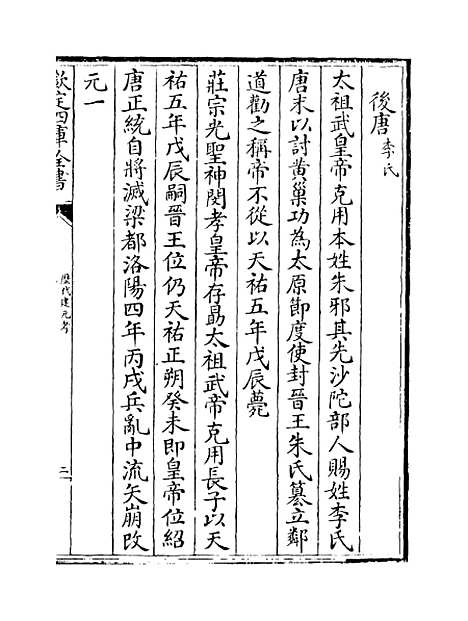 後唐李氏
太祖武皇帝克用本姓朱邪其先沙陀部人賜姓李氏
唐末以討黄巢功為太原節度使封晉王朱氏簒立鄰
道勸之稱帝不從以天祐五年戊辰薨
莊宗光聖神閔孝皇帝存勗太祖武帝克用長子以天
祐五年戊辰嗣晉王位仍天祐正朔癸未即皇帝位紹
唐正統自將滅梁都洛陽四年丙戌兵亂中流矢崩改
元一
欽定四庫全書
歴代建元考